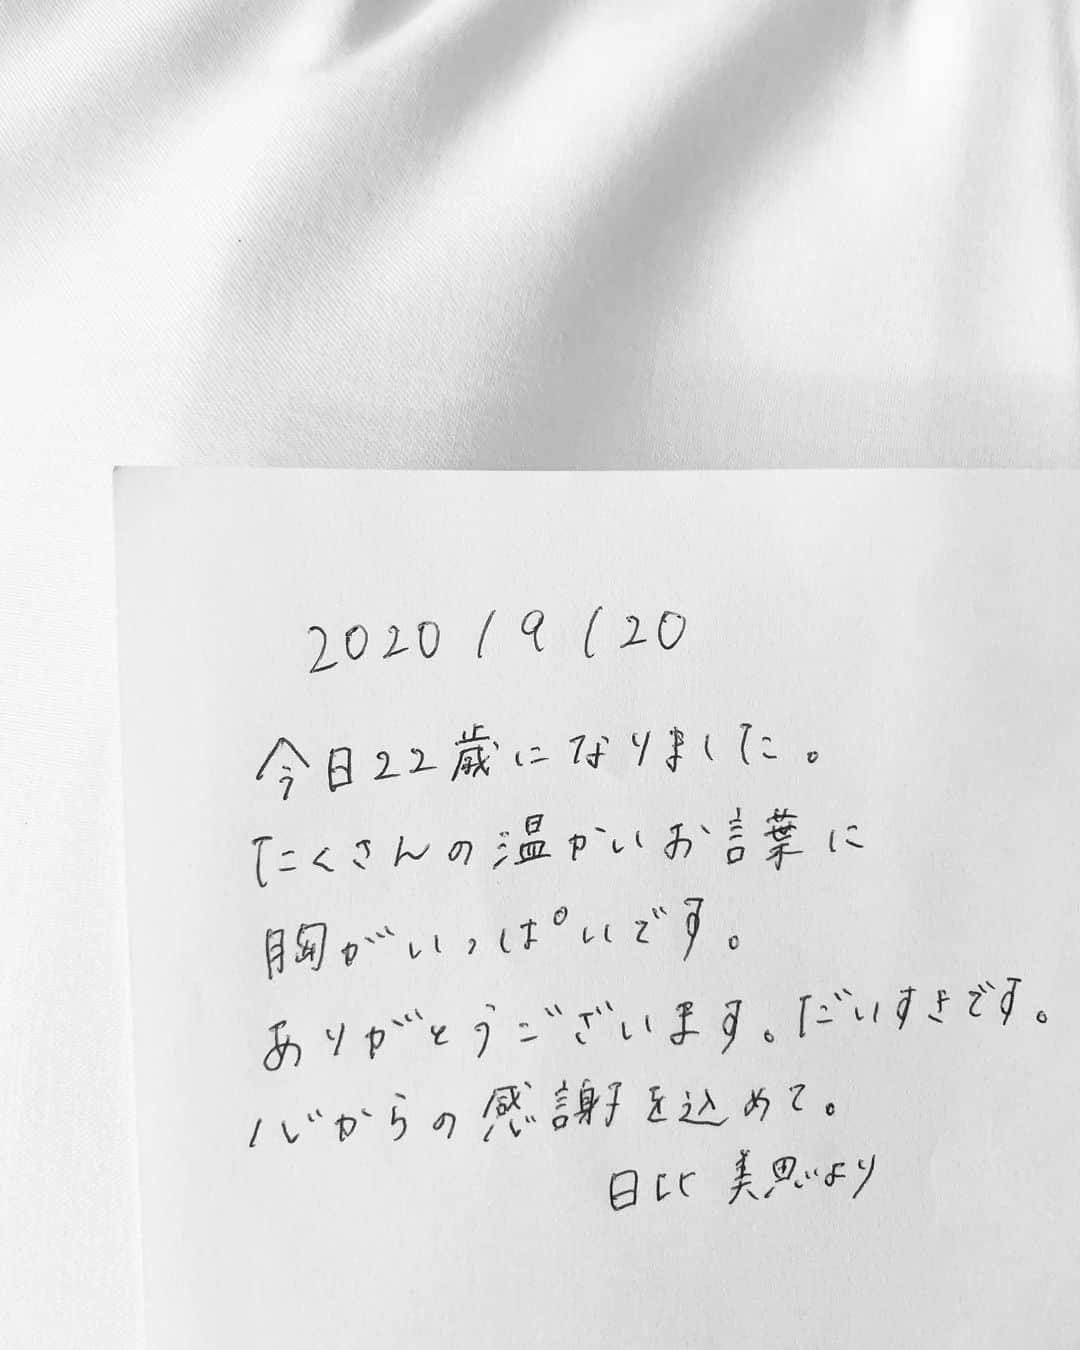 2020/9/20
今日22歳になりました。
たくさんの温かいお言葉に
胸がいっぱいです。
ありがとうございます。だいすきです。
心からの感謝を込めて。
日比 美思より